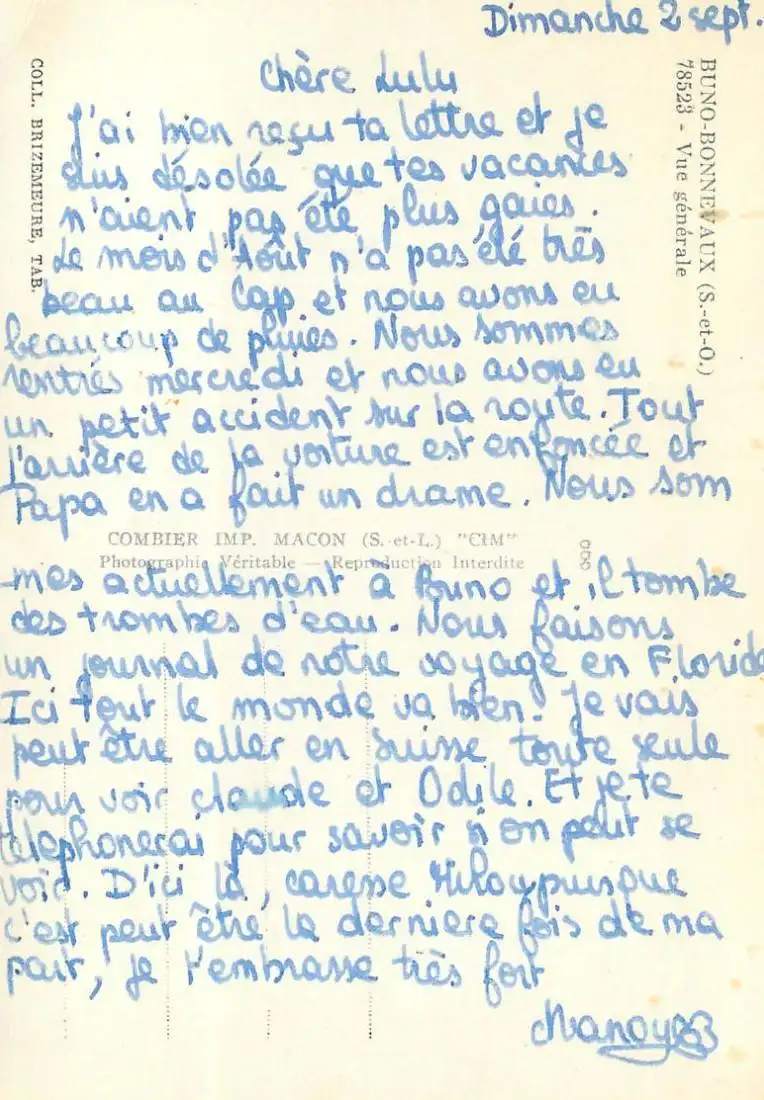 Dimanche 2 sept.
BUNO-BONNEVAUX (S.-et-O.)
78523 - Vue générale
COLL. BRIZEMEURE, TAB.
Chère Lulu
J'ai bien reçu ta lettre et je
suis désolée que tes vacances
n'aient pas été plus gaies.
Le mois d'Août n'a pas été très
beau au Cap et nous avons eu
beaucoup de pluies. Nous sommes
rentrés mercredi et nous avons eu
un petit accident sur la route. Tout
l'arrière de la voiture est enfoncée et
Papa en a fait un drame. Nous som
COMBIER IMP. MACON (S.-et-L.) "CIM"
Photographie Véritable — Reproduction Interdite
-mes actuellement à Buno et il tombe
des trombes d'eau. Nous faisons
un journal de notre voyage en Floride
Ici tout le monde va bien. Je vais
peut être aller en Suisse toute seule
pour voir Claude et Odile. Et je te
télephonerai pour savoir si on peut se
voir. D'ici là, caresse puisque
c'est peut être la derniere fois de ma
part, je t'embrasse très fort